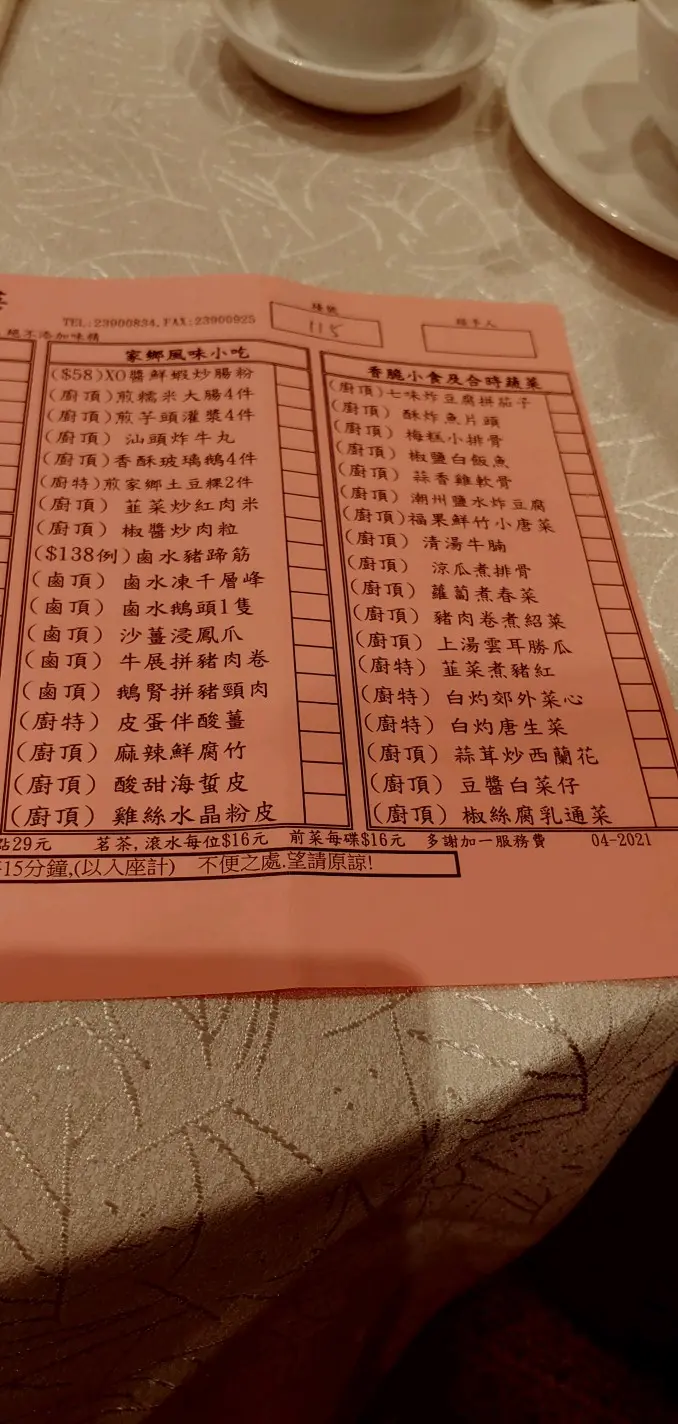 TEL:23900834.FAX:23900925
絕不添加味精
檯號
115
經手人
家鄉風味小吃
($58)XO醬鮮蝦炒腸粉
(廚頂)煎糯米大腸4件
(廚頂)煎芋頭灌漿4件
(廚頂) 汕頭炸牛丸
(廚頂)香酥玻璃鵝4件
(廚特)煎家鄉土豆粿2件
(廚頂) 韮菜炒紅肉米
(廚頂) 椒醬炒肉粒
($138例)鹵水豬蹄筋
(鹵頂) 鹵水凍千層峰
(鹵頂) 鹵水鵝頭1隻
(鹵頂) 沙薑浸鳳爪
(鹵頂) 牛展拼豬肉卷
(鹵頂) 鵝腎拼豬頸肉
(廚特) 皮蛋伴酸薑
(廚頂) 麻辣鮮腐竹
(廚頂) 酸甜海蜇皮
(廚頂) 雞絲水晶粉皮
香脆小食及合時蔬菜
(廚頂)七味炸豆腐拼茄子
(廚頂) 酥炸魚片頭
(廚頂) 梅糕小排骨
(廚頂) 椒鹽白飯魚
(廚頂) 蒜香雞軟骨
(廚頂) 潮州鹽水炸豆腐
(廚頂)福果鮮竹小唐菜
(廚頂) 清湯牛腩
(廚頂) 涼瓜煮排骨
(廚頂) 蘿蔔煮春菜
(廚頂) 豬肉卷煮紹菜
(廚頂) 上湯雲耳勝瓜
(廚特) 韮菜煮豬紅
(廚特) 白灼郊外菜心
(廚特) 白灼唐生菜
(廚頂) 蒜茸炒西蘭花
(廚頂) 豆醬白菜仔
(廚頂) 椒絲腐乳通菜
點29元 茗茶,滾水每位$16元 前菜每碟$16元 多謝加一服務費 04-2021
15分鐘,(以入座計) 不便之處.望請原諒!